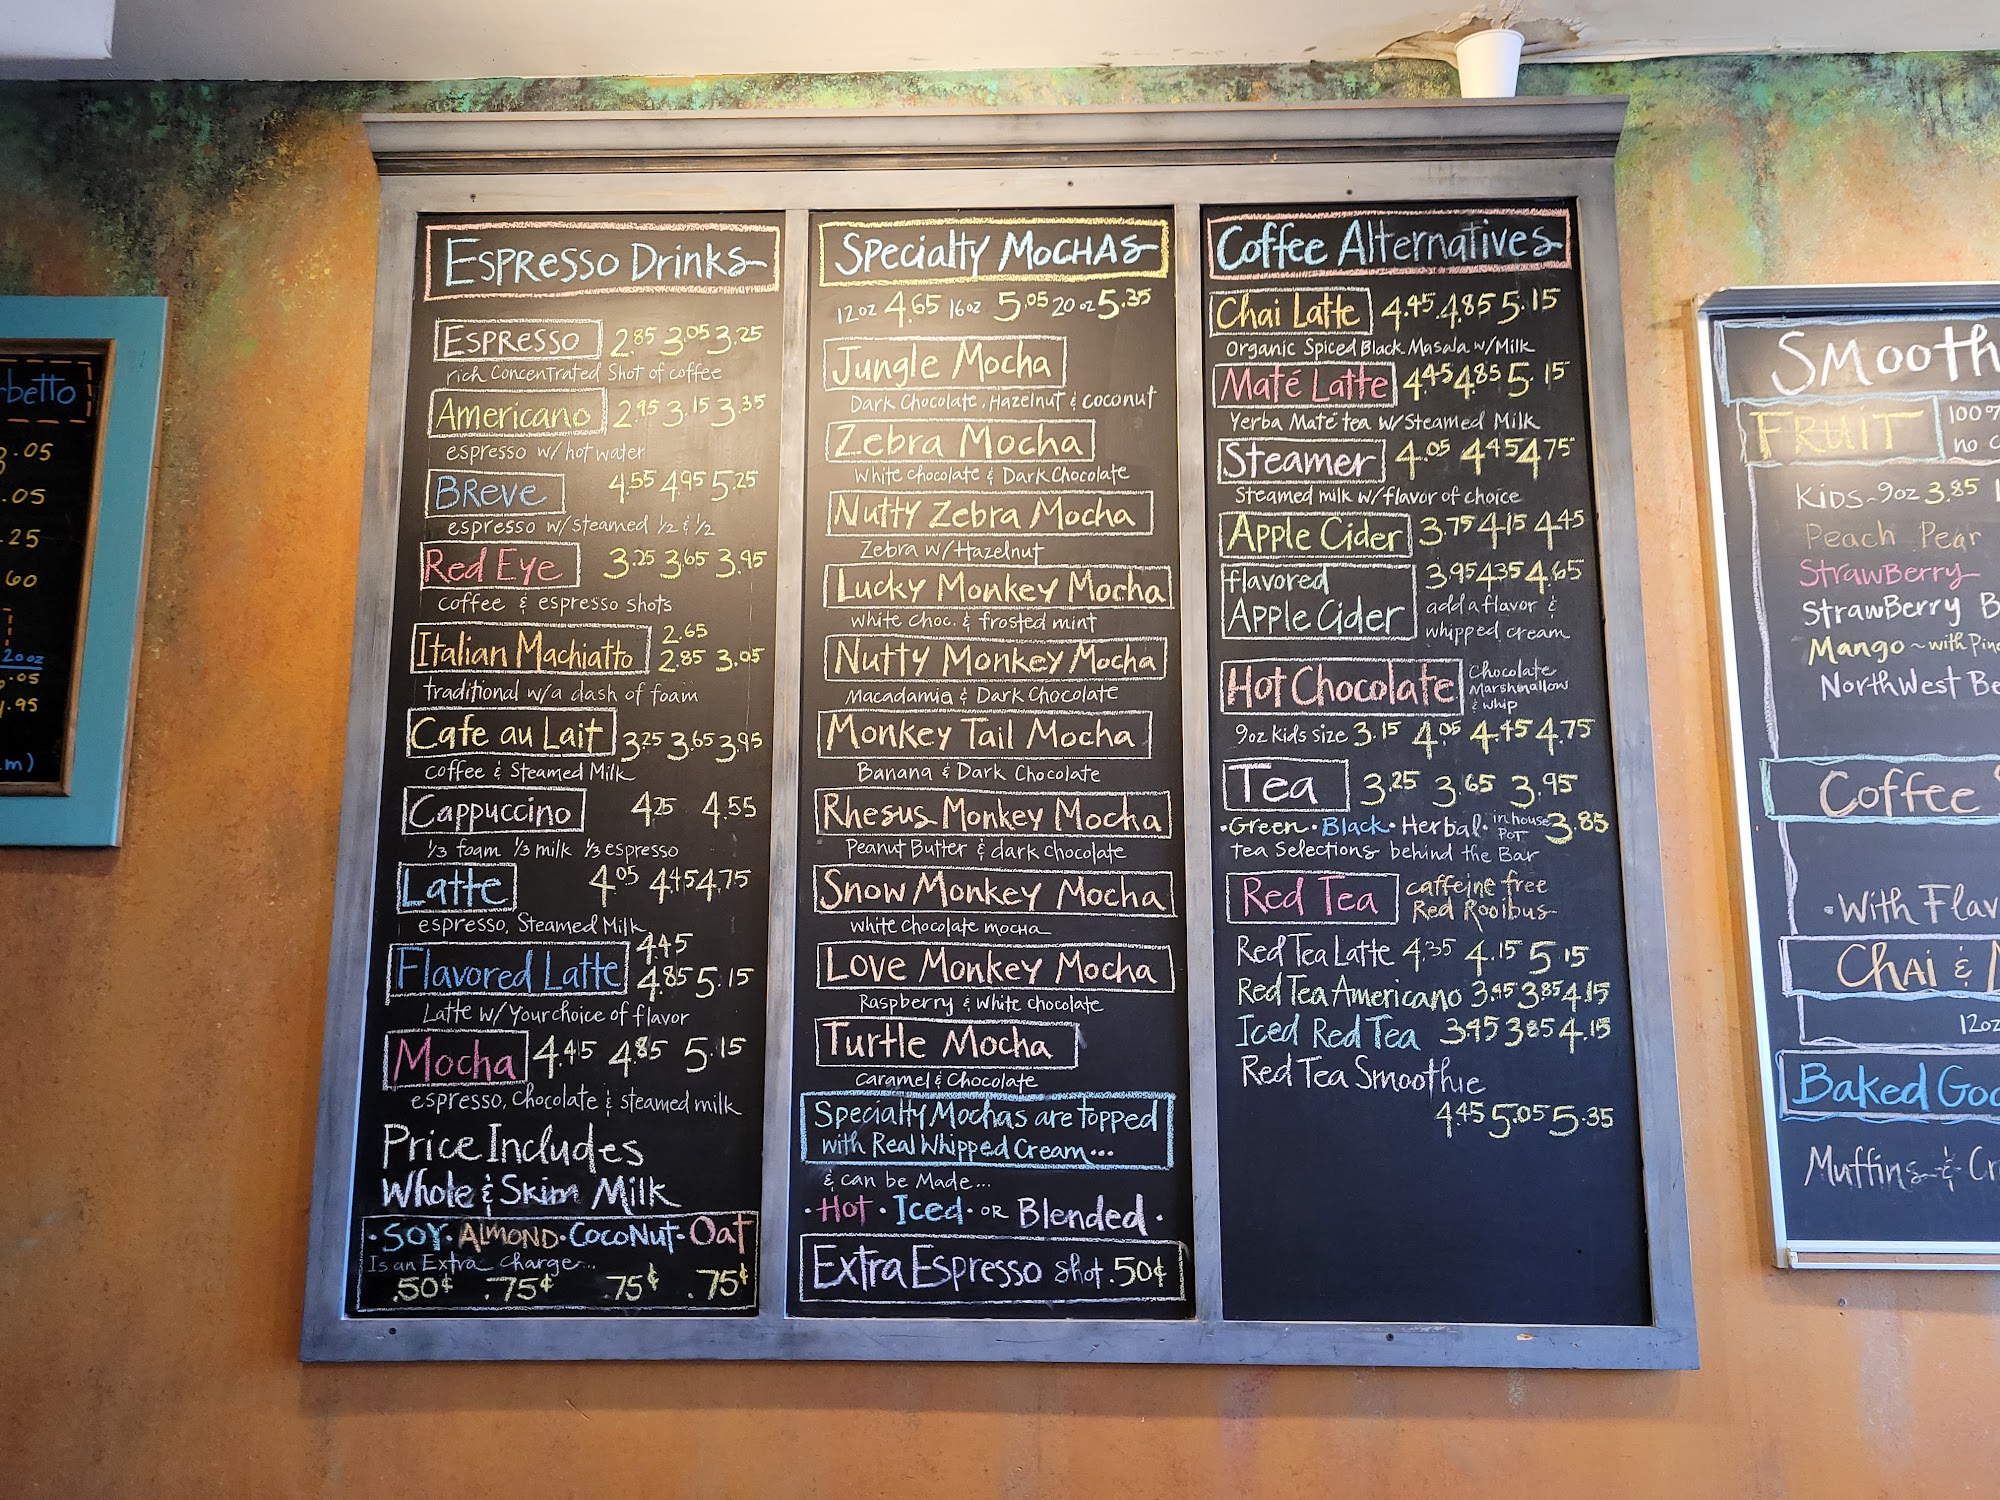 rbetto
3.05
.05
.25
.60
20oz
.05
.95
m)
Espresso Drinks
Espresso 2.85 3.05 3.25
rich concentrated Shot of coffee
Americano 2.95 3.15 3.35
espresso w/ hot water
Breve 4.55 4.95 5.25
espresso w/ steamed 1/2 & 1/2
Red Eye 3.25 3.65 3.95
coffee & espresso shots
Italian Machiatto 2.65
2.85 3.05
traditional w/a dash of foam
Cafe au Lait 3.25 3.65 3.95
coffee & Steamed Milk
Cappuccino 4.25 4.55
1/3 foam 1/3 milk 1/3 espresso
Latte 4.05 4.45 4.75
espresso, Steamed Milk
Flavored Latte 4.45
4.85 5.15
Latte w/ Your choice of flavor
Mocha 4.45 4.85 5.15
espresso, Chocolate & steamed milk
Price Includes
Whole & Skim Milk
• Soy • Almond • Coconut • Oat
Is an Extra charge...
.50¢ .75¢ .75¢ .75¢
Specialty Mochas
12oz 4.65 16oz 5.05 20oz 5.35
Jungle Mocha
Dark Chocolate, Hazelnut & coconut
Zebra Mocha
White chocolate & Dark Chocolate
Nutty Zebra Mocha
Zebra w/ Hazelnut
Lucky Monkey Mocha
white choc. & frosted mint
Nutty Monkey Mocha
Macadamia & Dark Chocolate
Monkey Tail Mocha
Banana & Dark Chocolate
Rhesus Monkey Mocha
Peanut Butter & dark chocolate
Snow Monkey Mocha
white chocolate mocha
Love Monkey Mocha
Raspberry & white chocolate
Turtle Mocha
Caramel & Chocolate
Specialty Mochas are topped
with Real Whipped Cream...
& can be Made...
• Hot • Iced • or Blended •
Extra Espresso shot .50¢
Coffee Alternatives
Chai Latte 4.45 4.85 5.15
Organic Spiced Black Masala w/Milk
Maté Latte 4.45 4.85 5.15
Yerba Maté tea w/ Steamed Milk
Steamer 4.05 4.45 4.75
Steamed milk w/ flavor of choice
Apple Cider 3.75 4.15 4.45
flavored 3.95 4.35 4.65
Apple Cider add a flavor &
whipped cream
Hot Chocolate Chocolate
Marshmallows
& whip
9oz Kids size 3.15 4.05 4.45 4.75
Tea 3.25 3.65 3.95
• Green • Black • Herbal • in house Pot 3.85
tea Selections behind the Bar
Red Tea caffeine free
Red Rooibus
Red Tea Latte 4.35 4.15 5.15
Red Tea Americano 3.45 3.85 4.15
Iced Red Tea 3.45 3.85 4.15
Red Tea Smoothie
4.45 5.05 5.35
Smooth
Fruit 100%
no c
Kids~9oz 3.85 1
Peach Pear
Strawberry
Strawberry B
Mango ~ with Pine
Northwest Be
Coffee
• With Flav
Chai &
12oz
Baked Goo
Muffins & Cr